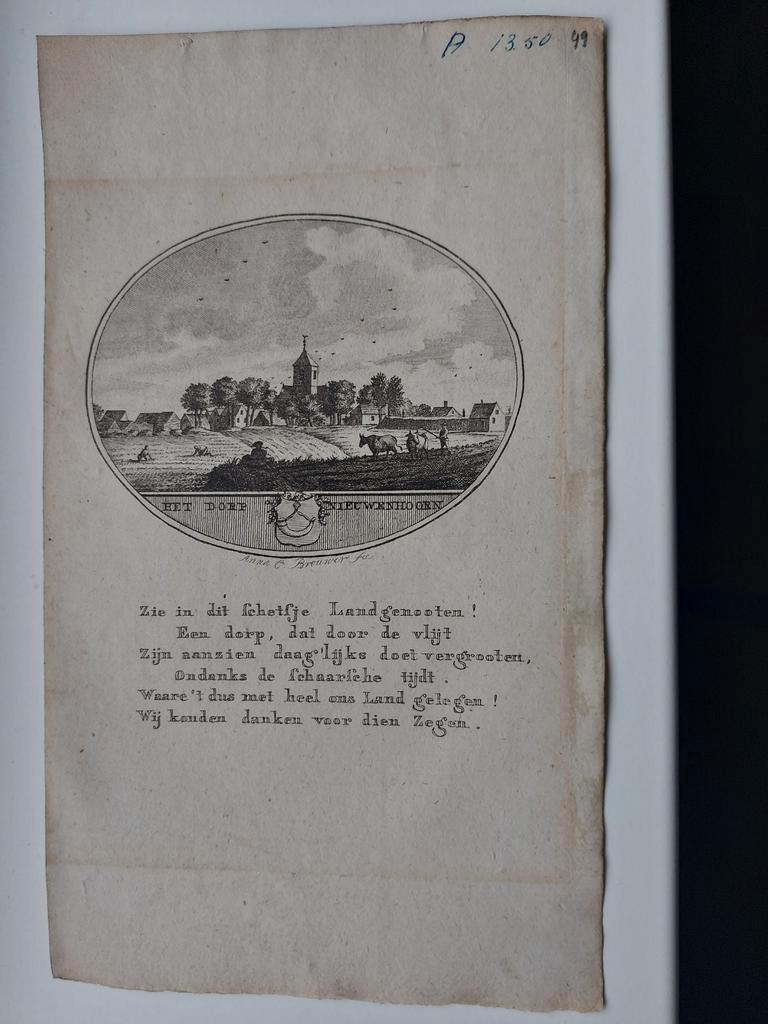 A 13.50 49
HET DORP NIEUWENHOORN
Anna C Brouwer fec.
Zie in dit schetsje Landgenooten!
Een dorp, dat door de vlijt
Zijn aanzien daag'lijks doet vergrooten,
Ondanks de schaarsche tijdt.
Waare't dus met heel ons Land gelegen!
Wij konden danken voor dien Zegen.